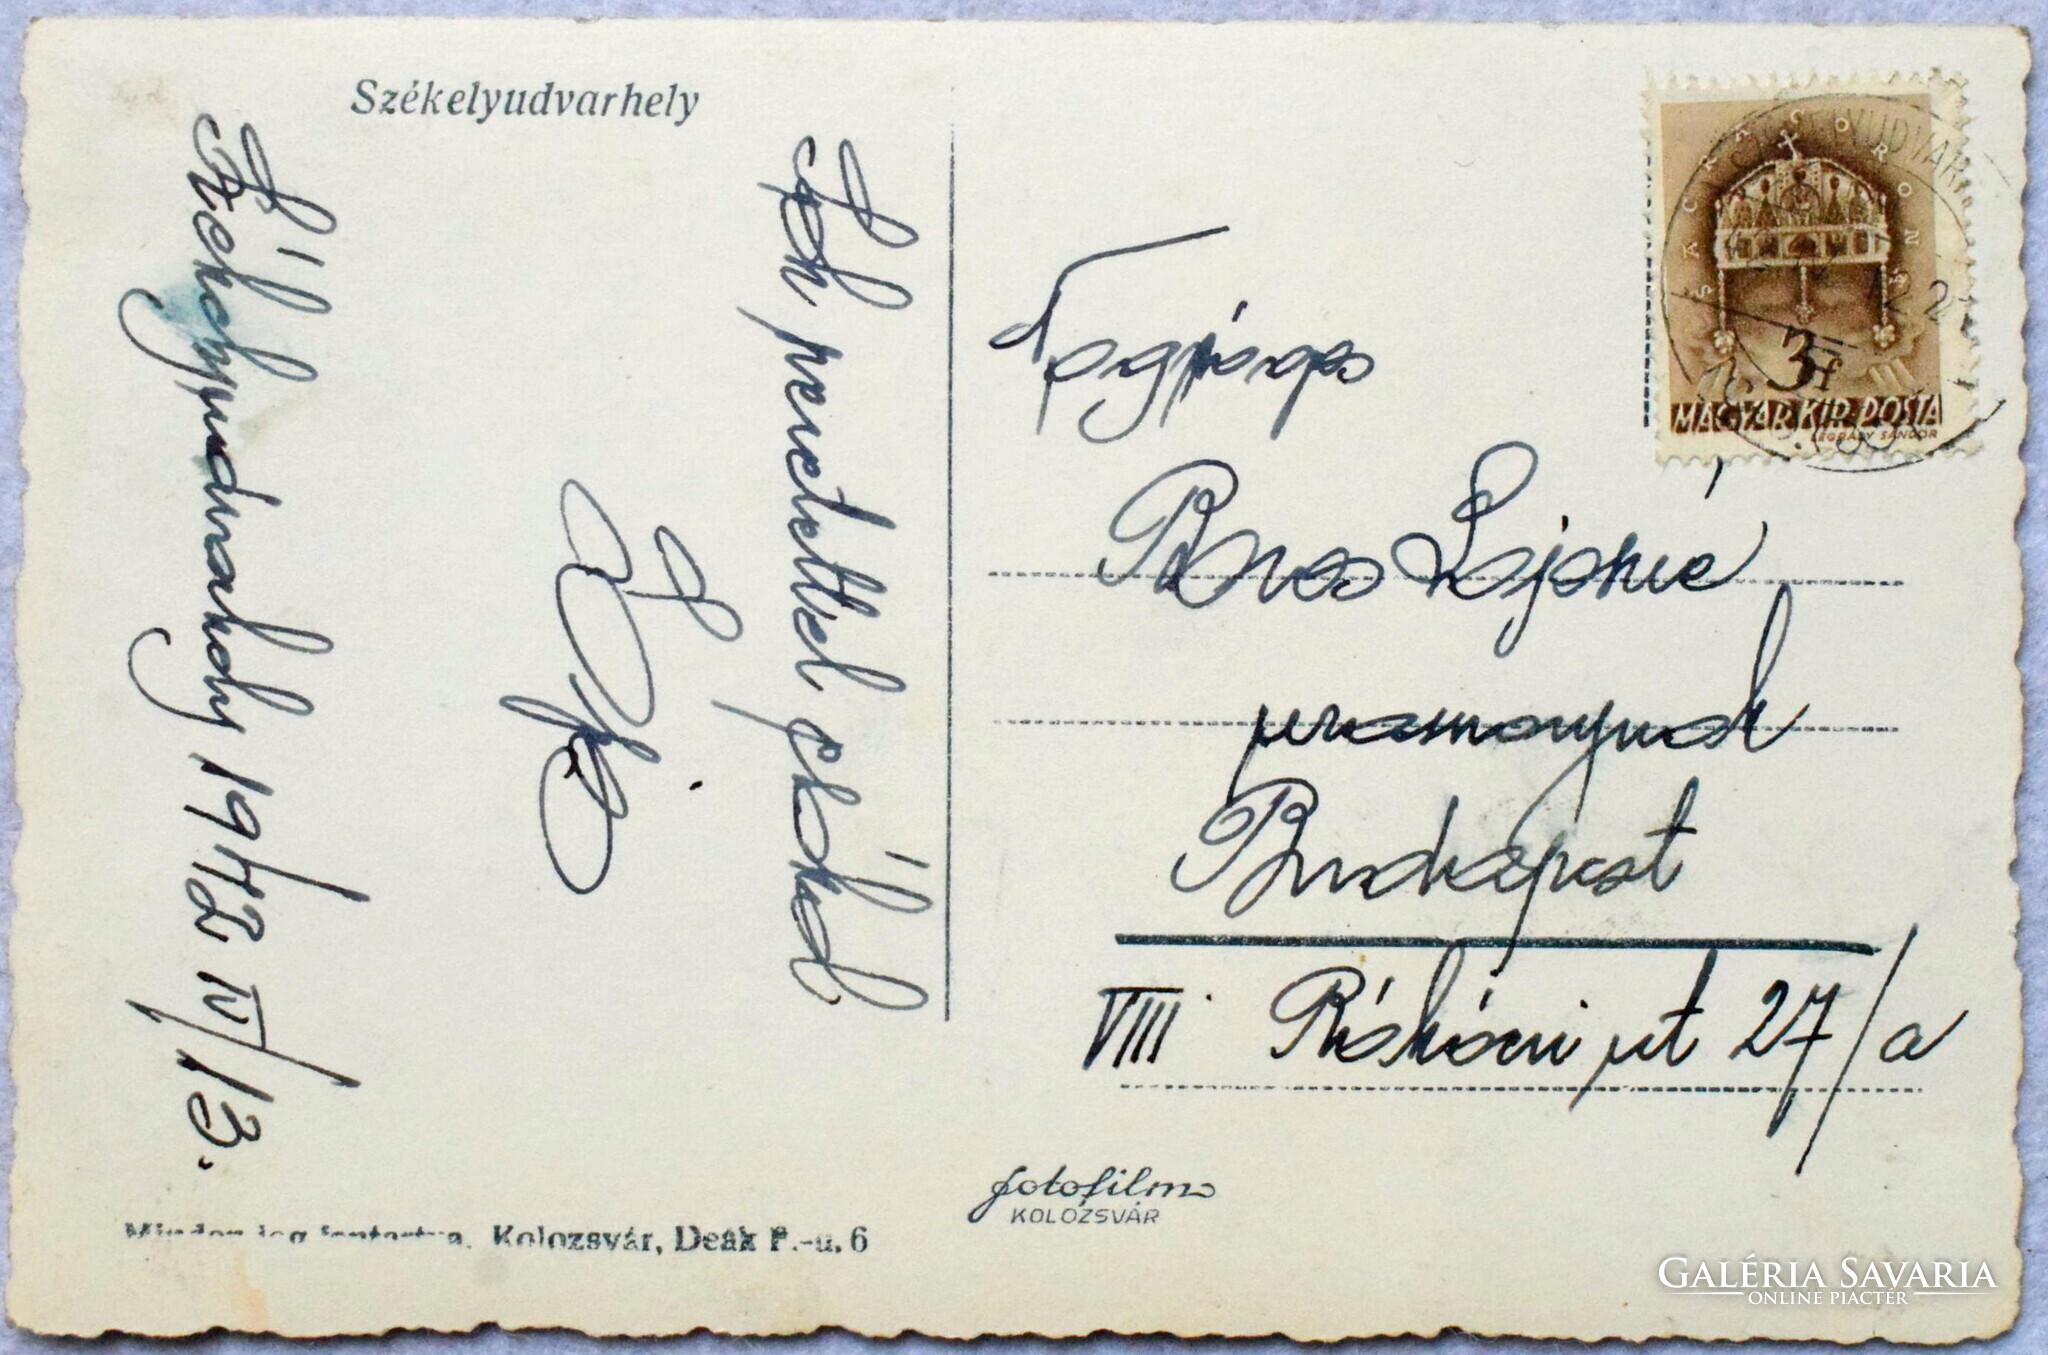 Székelyudvarhely
Sok szeretettel csókol
Székelyudvarhely 1942 IV/13.
Minden jog fentartva. Kolozsvár, Deák F.-u. 6
SACRA CORONA
3f
MAGYAR KIR. POSTA
LÉGRÁDY SÁNDOR
Nagyságos
Lajosné
uramőnynak
Budapest
VIII Rákóczi út 27/a
fotofilm
KOLOZSVÁR
GALÉRIA SAVARIA
ONLINE PIACTÉR